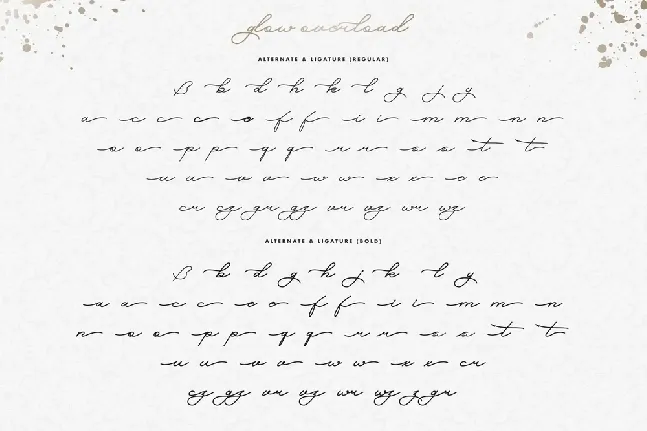 glow overload
ALTERNATE & LIGATURE (REGULAR)
B b d h k l g j y
a c c c o f f i i m m n n
o o p p q q r r s s t t
u u v v w w x x o o
cr cz gr gz vr vz wr wz
ALTERNATE & LIGATURE (BOLD)
B b d g h j k l y
a a c c o o f f i i m m n
n o o p p q q r r s s t t
u u v v w w x x cr
cz gz vr vz wr wz z gr